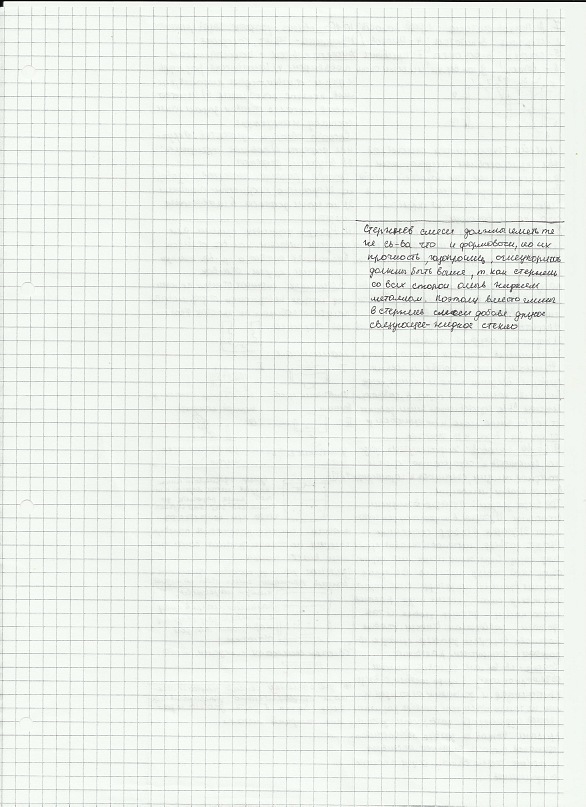 Стержнев смеси должны иметь те
же св-ва что и формовочн, но их
прочность, газопрониц, огнеупорность
должны быть выше, т как стержень
со всех сторон омыв жидким
металлом. Поэтому вместо глины
в стержнев смеси добавл другое
связующее - жидкое стекло